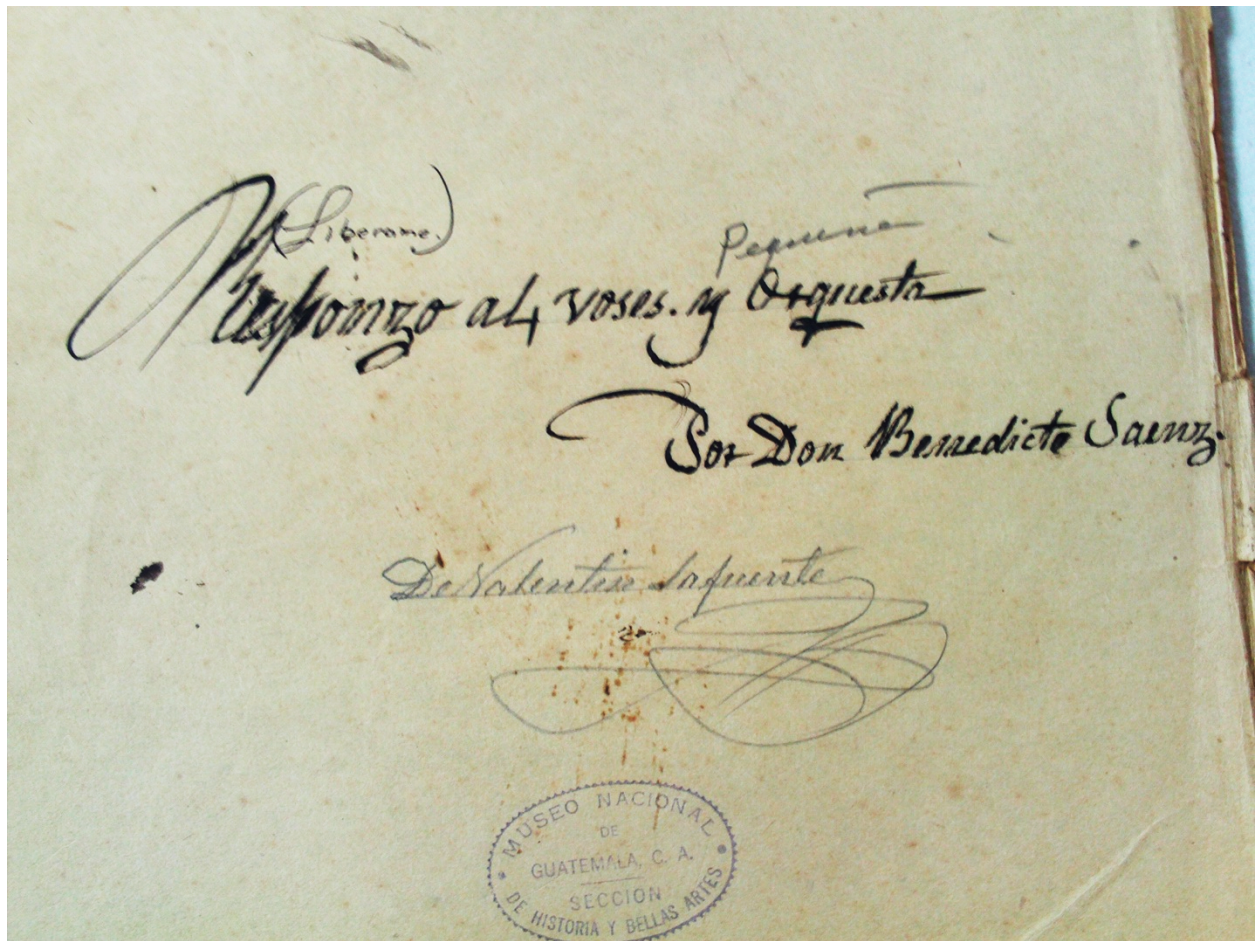 (Liberame.)
Pequeña
Responzo a 4 voses. y Orquesta
Por Don Benedicto Saenz.
De Valentin Lafuente
MUSEO NACIONAL
DE
GUATEMALA, C. A.
SECCION
DE HISTORIA Y BELLAS ARTES